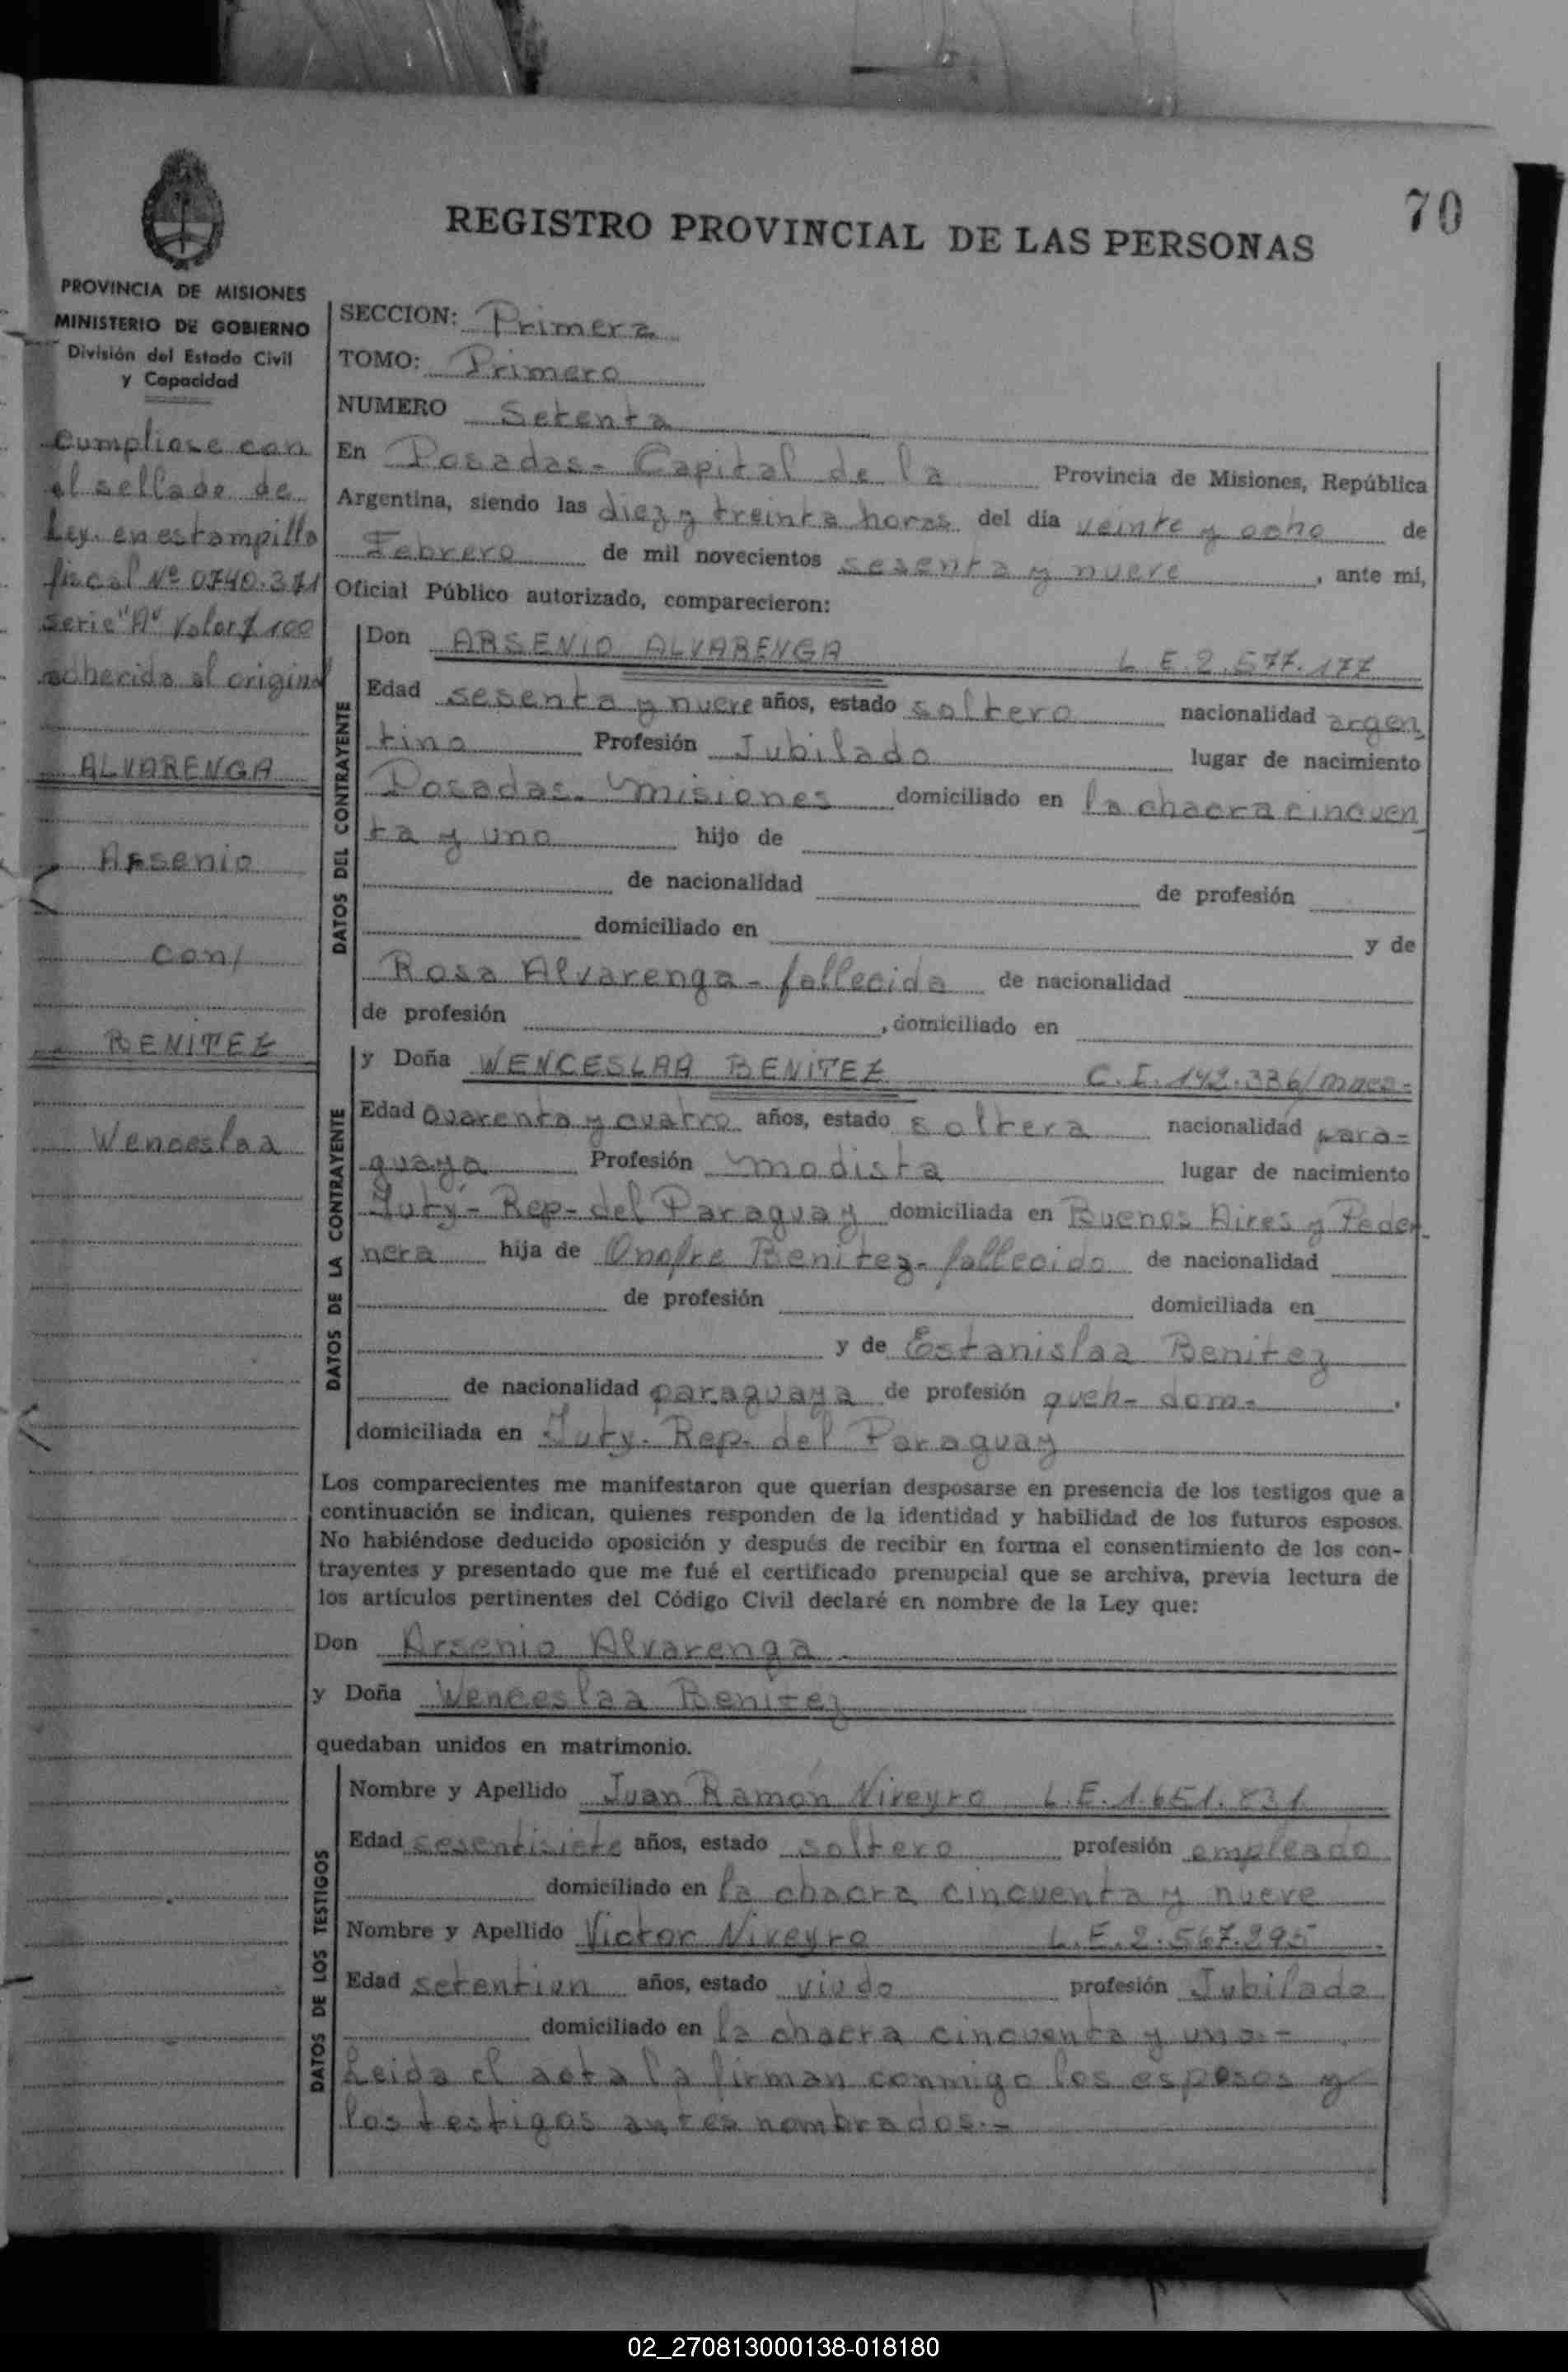 70
REGISTRO PROVINCIAL DE LAS PERSONAS
PROVINCIA DE MISIONES
MINISTERIO DE GOBIERNO
División del Estado Civil
y Capacidad
Cumpliose con
el sellado de
Ley. en estampilla
fiscal Nº 0740.371
serie "A" Valor $ 100
adherida al original
ALVARENGA
Arsenio
con/
BENITEZ
Wenceslaa
SECCION: Primera
TOMO: Primero
NUMERO Setenta
En Posadas - Capital de la Provincia de Misiones, República
Argentina, siendo las diez y treinta horas del día veinte y ocho de
Febrero de mil novecientos sesenta y nueve, ante mí,
Oficial Público autorizado, comparecieron:
DATOS DEL CONTRAYENTE
Don ARSENIO ALVARENGA L.E.2.577.177
Edad sesenta y nueve años, estado soltero nacionalidad argen
tino Profesión Jubilado lugar de nacimiento
Posadas - Misiones domiciliado en la chacra cincuen
ta y uno hijo de
de nacionalidad de profesión
domiciliado en y de
Rosa Alvarenga - fallecida de nacionalidad
de profesión , domiciliado en
DATOS DE LA CONTRAYENTE
y Doña WENCESLAA BENITEZ C.I.142.336/mnes-
Edad cuarenta y cuatro años, estado soltera nacionalidad para-
guaya Profesión modista lugar de nacimiento
Yuty - Rep- del Paraguay domiciliada en Buenos Aires y Peder-
nera hija de Onofre Benitez - fallecido de nacionalidad
de profesión domiciliada en
y de Estanislaa Benitez
de nacionalidad paraguaya de profesión queh- dom-,
domiciliada en Yuty. Rep. del Paraguay
Los comparecientes me manifestaron que querían desposarse en presencia de los testigos que a
continuación se indican, quienes responden de la identidad y habilidad de los futuros esposos.
No habiéndose deducido oposición y después de recibir en forma el consentimiento de los con-
trayentes y presentado que me fué el certificado prenupcial que se archiva, previa lectura de
los artículos pertinentes del Código Civil declaré en nombre de la Ley que:
Don Arsenio Alvarenga
y Doña Wenceslaa Benitez
quedaban unidos en matrimonio.
DATOS DE LOS TESTIGOS
Nombre y Apellido Juan Ramón Niveyro L.E.1.651.831
Edad sesentisiete años, estado soltero profesión empleado
domiciliado en la chacra cincuenta y nueve
Nombre y Apellido Victor Niveyro L.E.2.567.295
Edad setentiun años, estado viudo profesión Jubilado
domiciliado en la chacra cincuenta y uno.-
Leida el acta la firman conmigo los esposos y
los testigos antes nombrados.-
02_270813000138-018180